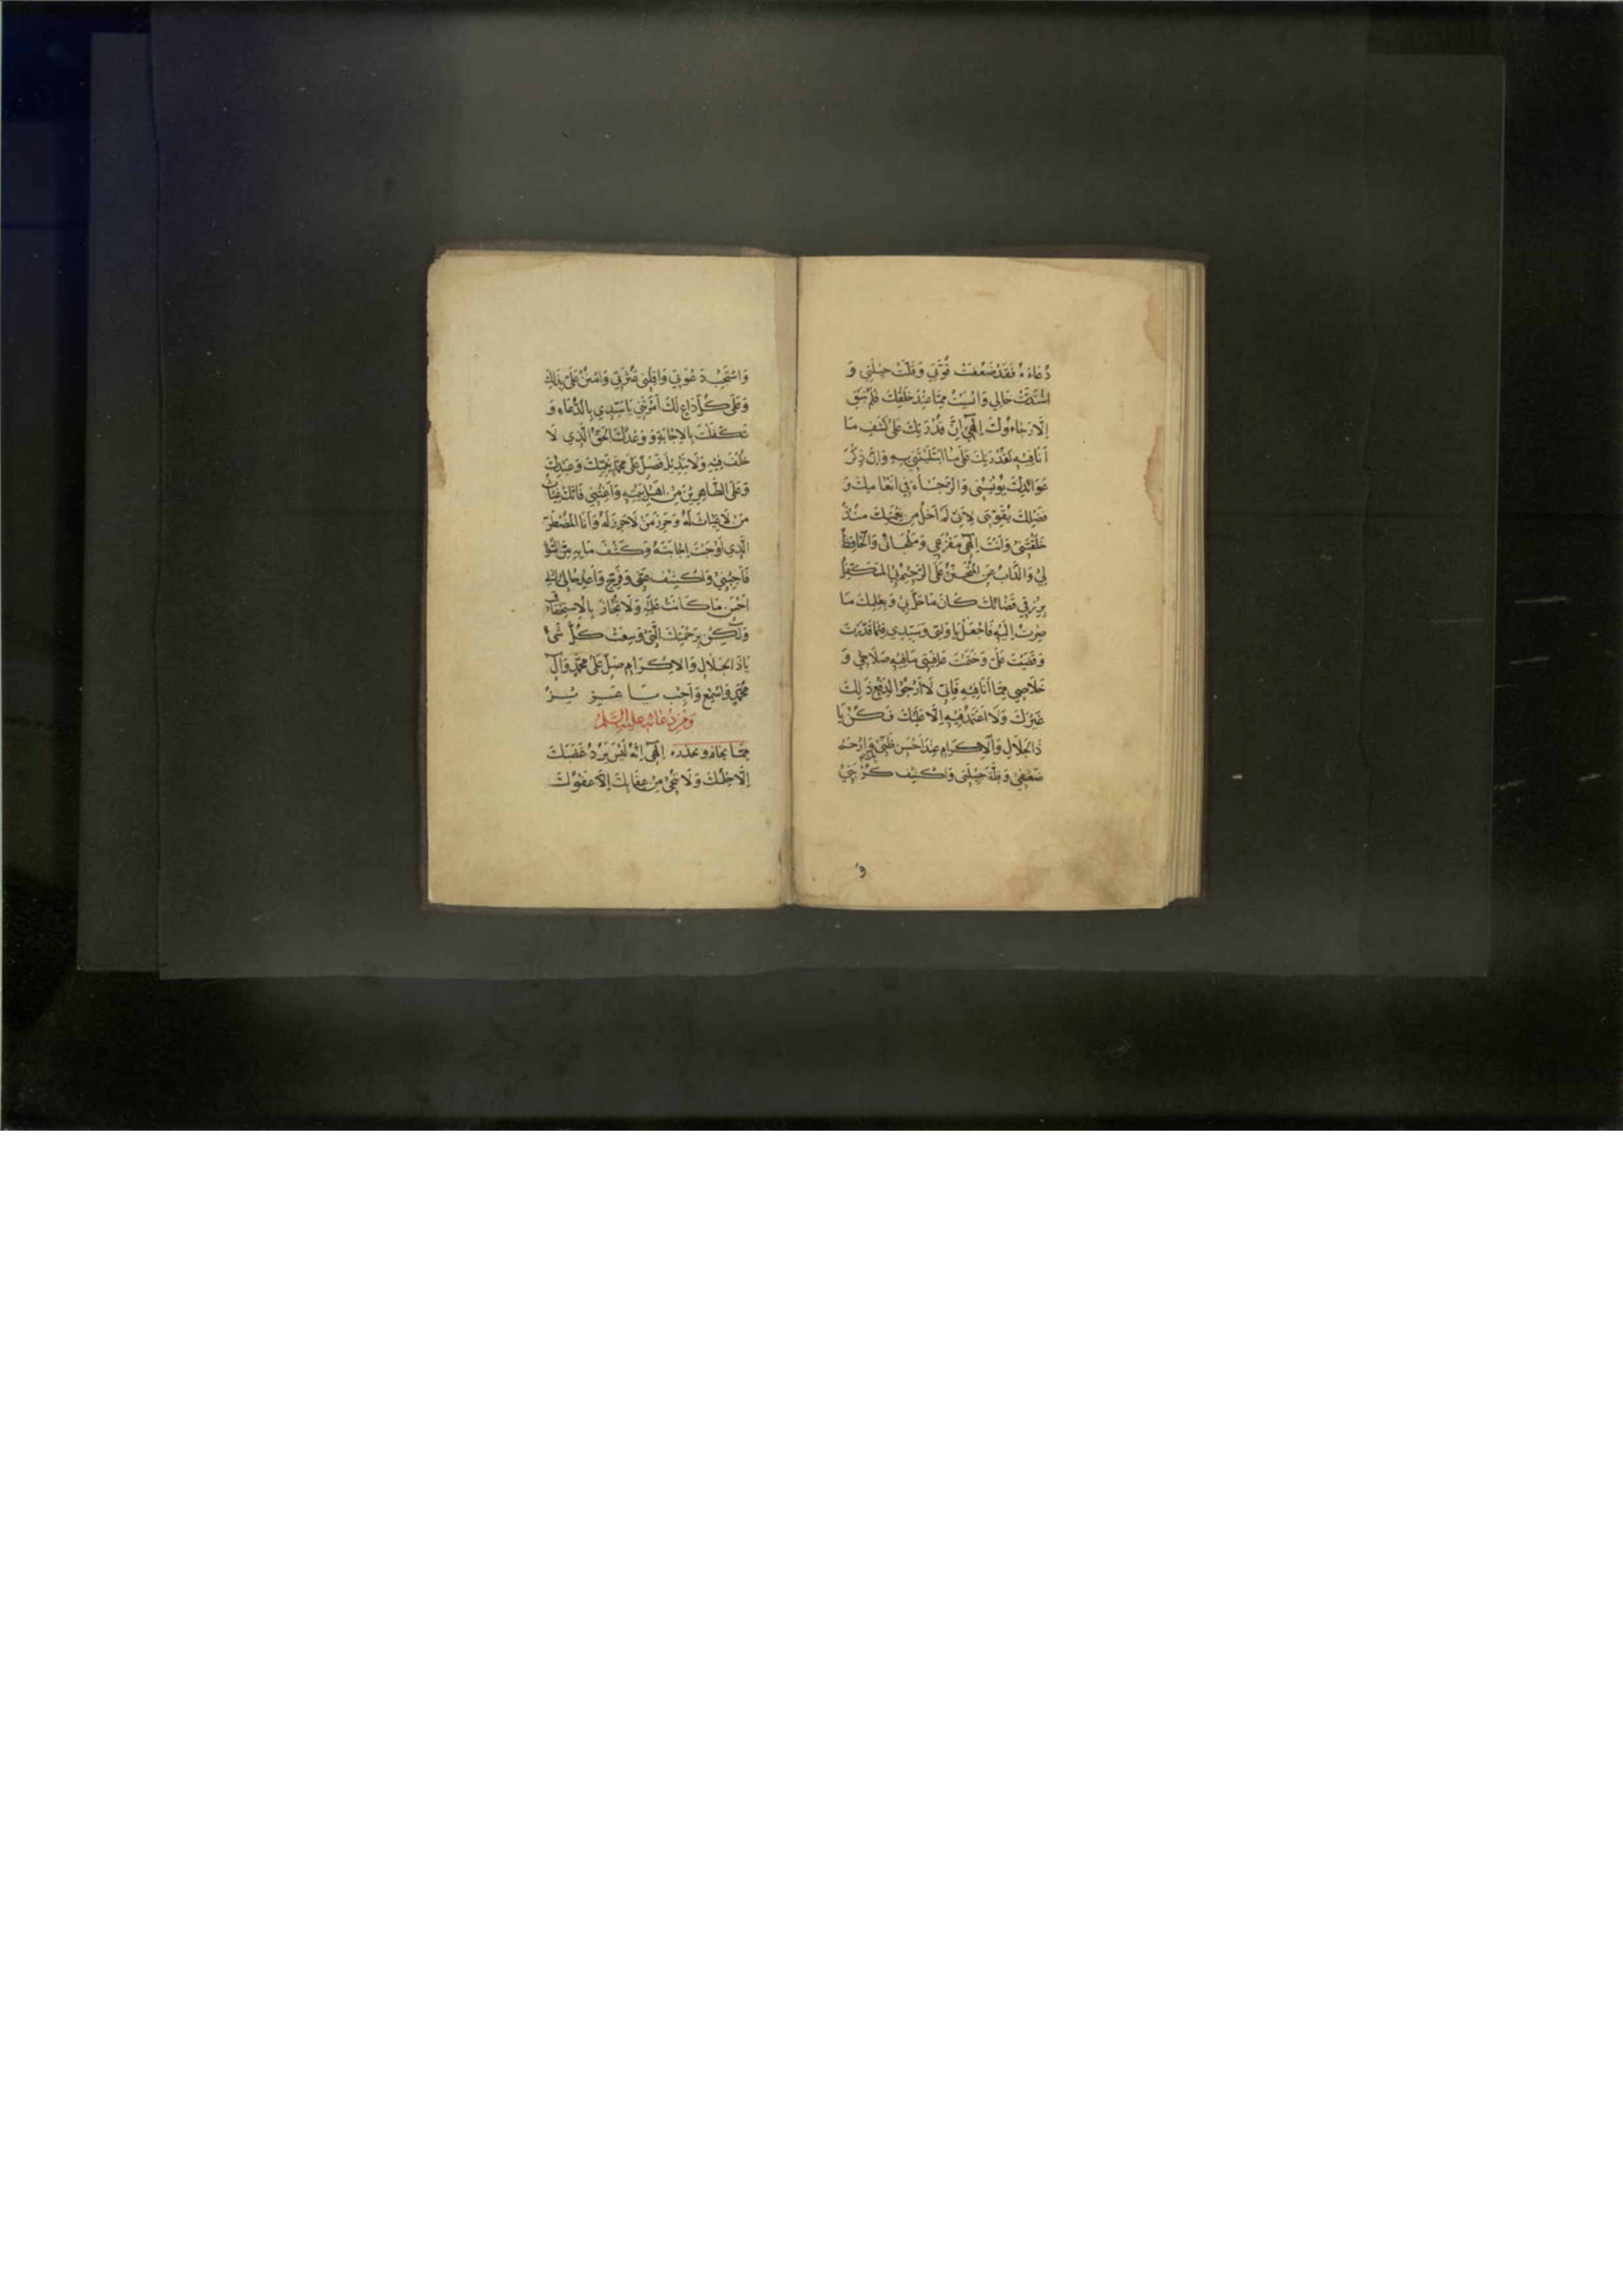 دُعَاءَهُ فَقَدْ ضَعُفَتْ قُوَّتِي وَقَلَّتْ حِيلَتِي وَ
اشْتَدَّتْ حَالِي وَاَيِسْتُ مِمَّا عِنْدَ خَلْقِكَ فَلَمْ يَبْقَ
اِلَّا رَجَاءُكَ اِلٰهِي اِنَّ قُدْرَتَكَ عَلَى كَشْفِ مَا
اَنَا فِيهِ كَقُدْرَتِكَ عَلَى مَا ابْتَلَيْتَنِي بِهِ وَاِنَّ ذِكْرَ
عَوَائِدِكَ يُونِسُنِي وَالرَّجَاءَ فِي اِنْعَامِكَ وَ
فَضْلِكَ يُقَوِّينِي لِاَنِّي لَمْ اَخْلُ مِنْ نِعْمَتِكَ مُنْذُ
خَلَقْتَنِي وَاَنْتَ اِلٰهِي مَفْزَعِي وَمَلْجَائِي وَالْحَافِظُ
لِي وَالذَّابُّ عَنِّي الْمُتَحَنِّنُ عَلَيَّ الرَّحِيمُ بِي الْمُتَكَفِّلُ
بِرِزْقِي فِي قَضَائِكَ كَانَ مَا حَلَّ بِي وَبِعِلْمِكَ مَا
صِرْتُ اِلَيْهِ فَاجْعَلْ يَا وَلِيِّي وَسَيِّدِي فِيمَا قَدَّرْتَ
وَقَضَيْتَ عَلَيَّ وَحَتَمْتَ عَافِيَتِي مَا فِيهِ صَلَاحِي وَ
خَلَاصِي مِمَّا اَنَا فِيهِ فَاِنِّي لَا اَرْجُوا لِدَفْعِ ذٰلِكَ
غَيْرَكَ وَلَا اَعْتَمِدُ فِيهِ اِلَّا عَلَيْكَ فَكُنْ يَا
ذَا الْجَلَالِ وَالْاِكْرَامِ عِنْدَ اَحْسَنِ ظَنِّي وَارْحَمْ
ضَعْفِي وَقِلَّةَ حِيلَتِي وَاكْشِفْ كُرْبَتِي
وَاسْتَجِبْ دَعْوَتِي وَاَقِلْنِي عَثْرَتِي وَامْنُنْ عَلَيَّ بِذٰلِكَ
وَعَلَى كُلِّ دَاعٍ لَكَ اَمَرْتَنِي يَا سَيِّدِي بِالدُّعَاءِ وَ
تَكَفَّلْتَ بِالْاِجَابَةِ وَوَعْدُكَ الْحَقُّ الَّذِي لَا
خُلْفَ فِيهِ وَلَا تَبْدِيلَ فَصَلِّ عَلَى مُحَمَّدٍ نَبِيِّكَ وَعَبْدِكَ
وَعَلَى الطَّاهِرِينَ مِنْ اَهْلِ بَيْتِهِ وَاَغِثْنِي فَاِنَّكَ غِيَاثُ
مَنْ لَا غِيَاثَ لَهُ وَحِرْزُ مَنْ لَا حِرْزَ لَهُ وَاَنَا الْمُضْطَرُّ
الَّذِي اَوْجَبْتَ اِجَابَتَهُ وَكَشْفَ مَا بِهِ مِنَ السُّوءِ
فَاَجِبْنِي وَاكْشِفْ غَمِّي وَفَرِّجْ وَاَعِدْ حَالِي اِلَى
اَحْسَنِ مَا كَانَتْ عَلَيْهِ وَلَا تُجَازِ بِالْاِسْتِحْقَاقِ
وَلٰكِنْ بِرَحْمَتِكَ الَّتِي وَسِعَتْ كُلَّ شَيْءٍ
يَا ذَا الْجَلَالِ وَالْاِكْرَامِ صَلِّ عَلَى مُحَمَّدٍ وَآلِ
مُحَمَّدٍ وَاسْمَعْ وَاَجِبْ يَا عَزِيزُ
وَمِنْ دُعَائِهِ عَلَيْهِ السَّلَامُ
مِمَّا يَخَافُهُ وَيَحْذَرُهُ اِلٰهِي اِنَّهُ لَيْسَ يَرُدُّ غَضَبَكَ
اِلَّا حِلْمُكَ وَلَا يُنْجِي مِنْ عِقَابِكَ اِلَّا عَفْوُكَ